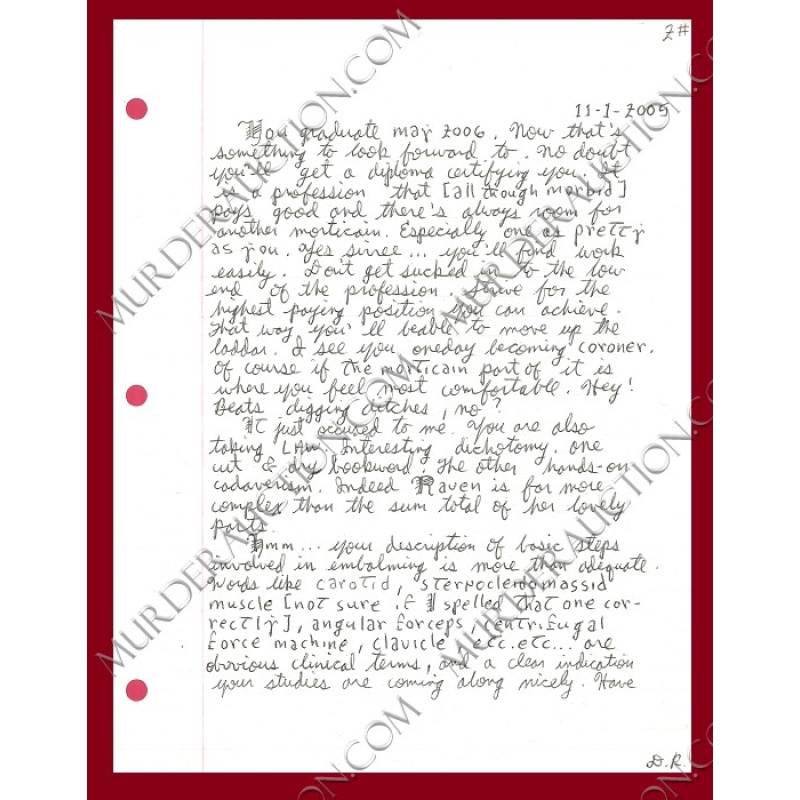 2#
11-1-2005
You graduate may 2006. Now that's
something to look forward to. No doubt
you'll get a diploma certifying you. It
is a profession that [all though morbid]
pays good and there's always room for
another morticain. Especially one as pretty
as you. Yes siree... you'll find work
easily. Don't get sucked in to the low
end of the profession. Strive for the
highest paying position you can achieve.
That way you'll beable to move up the
laddar. I see you oneday becoming coroner.
Of course if the morticain part of it is
where you feel most comfortable. Hey!
Beats digging ditches, no?
It just occured to me. You are also
taking LAW. Interesting dichotomy. One
cut & dry bookword. The other hands-on
cadaverism. Indeed Raven is far more
complex than the sum total of her lovely
parts.
Hmm... your description of basic steps
involved in embalming is more than adequate.
Words like carotid, sternocleidomassid
muscle [not sure if I spelled that one cor-
rectly], angular forceps, centrifugal
force machine, clavicle, ecc.etc... are
obvious clinical terms, and a clear indication
your studies are coming along nicely. Have
D.R.
MURDERAUCTION.COM